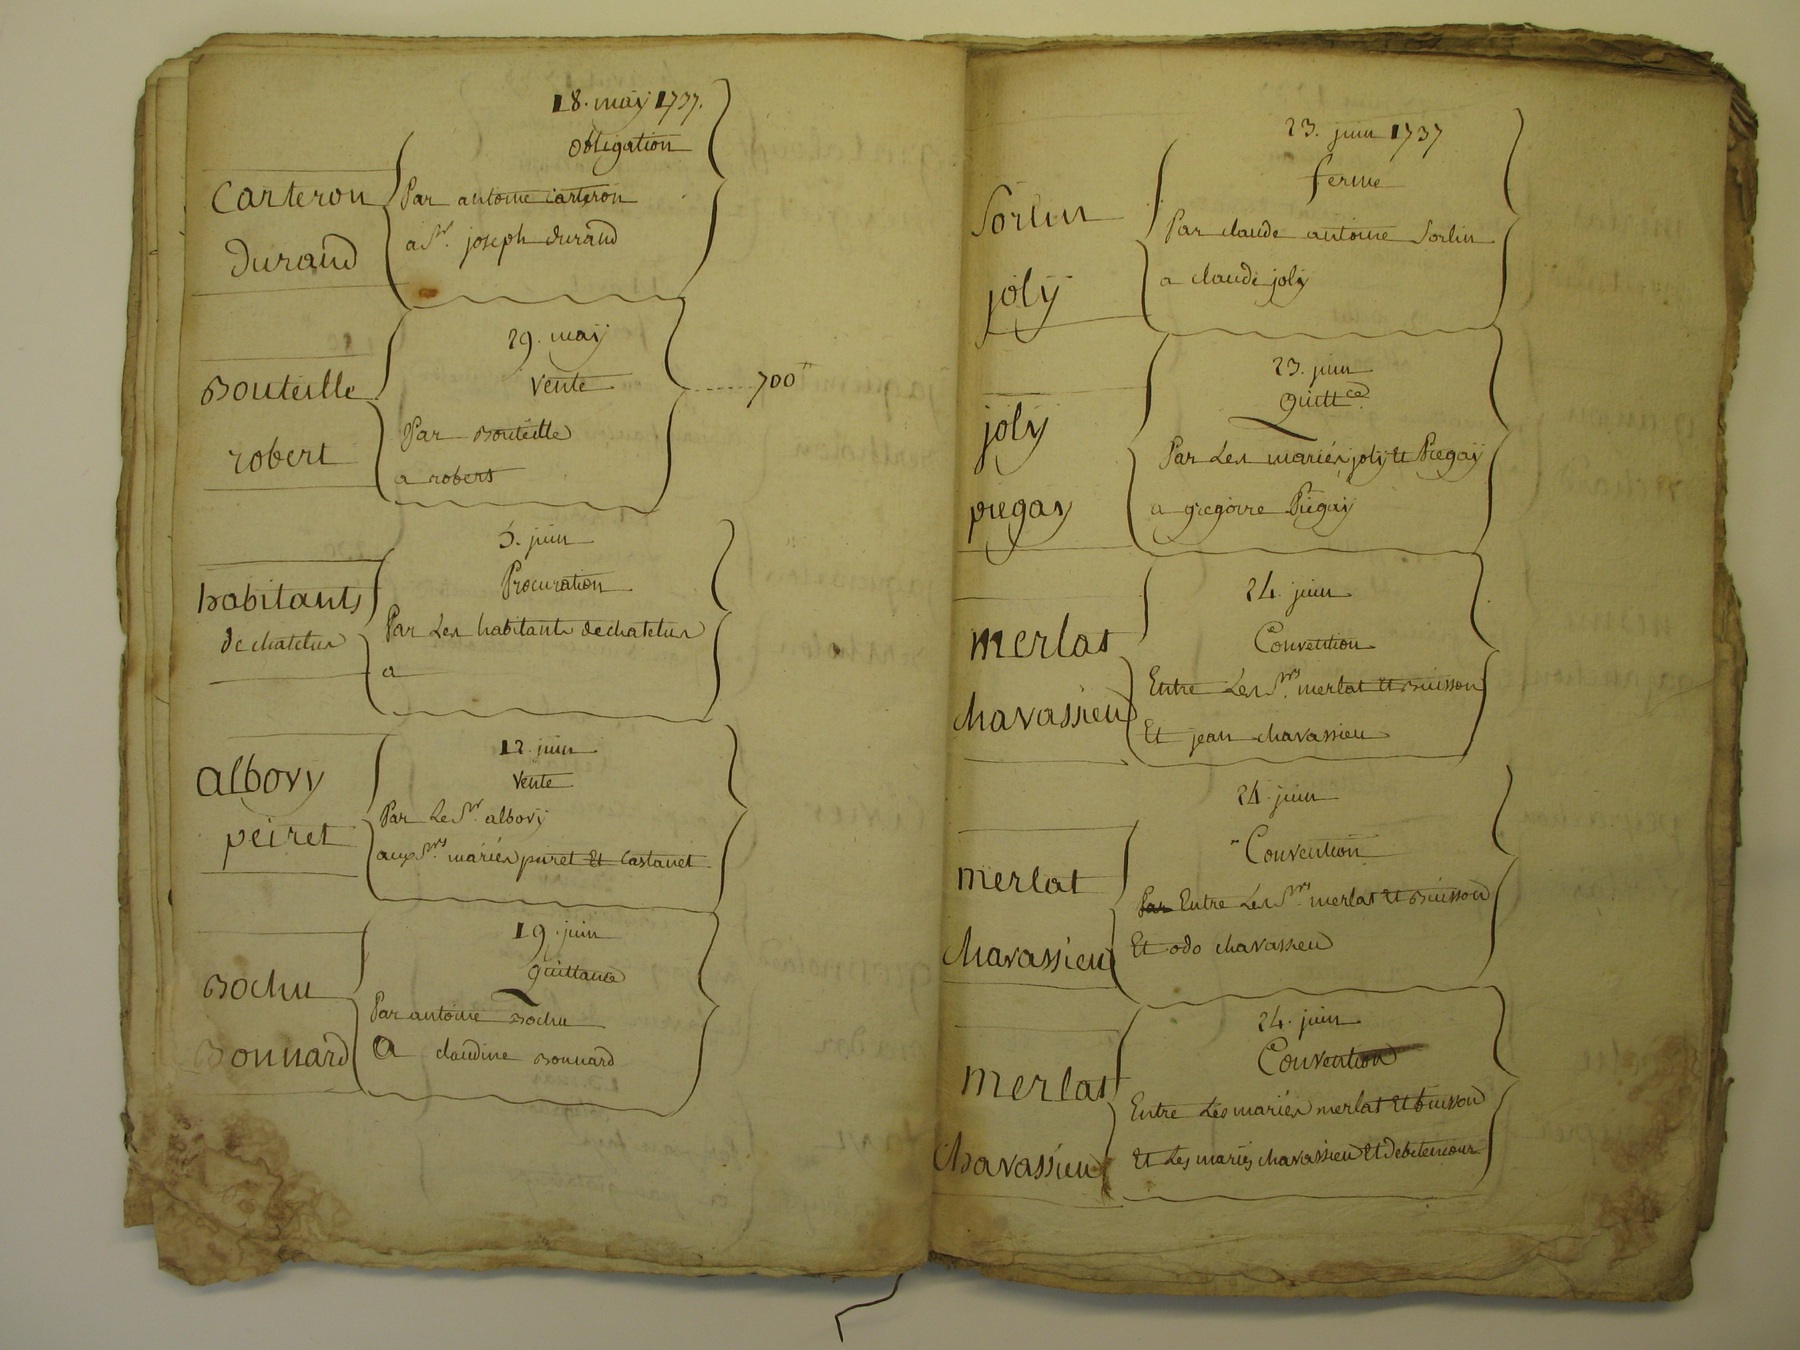 18. may 1737.
obligation
Carteron
Par antoine carteron
a Sr. joseph durand
durand
29. may
vente
700
Bouteille
Par Bouteille
robert
a robert
5. juin
Procuration
habitants
de chatelus
Par Les habitants de chatelus
a
12. juin
vente
albovy
Par Le Sr. albovy
peiret
aux Srs. mariés peiret Et Castanet
19. juin
quittance
Bochu
Par antoine Bochu
Bonnard
A claudine Bonnard
23. juin 1737
ferme
Sorlin
Par claude antoine Sorlin
joly
a claude joly
23. juin
quittce
joly
Par Les mariés joly Et Piegay
piegay
a gregoire Piegay
24. juin
Convention
merlat
Entre Les Srs. merlat Et Buisson
chavassieu
Et jean chavassieu
24. juin
Convention
merlat
Par Entre Les Srs. merlat Et Buisson
chavassieu
Et odo chavassieu
24. juin
Convention
merlat
Entre Les mariés merlat Et buisson
chavassieu
Et Les mariés chavassieu Et debetencour